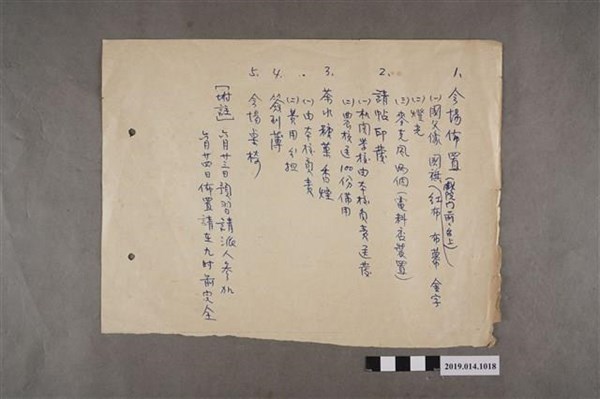 1. 会場佈置(戲院门前、台上)
(一)國父像 國旗(紅布 布幕 金字
(二)燈光
(三)麥克風兩個(電料店裝置)
2. 請帖印發
(一)机関學校由本校負責送發
(二)農校送100份備用
3. 茶水糖菓香煙
(一)由本校負責
(二)費用分担
4. 簽到簿
5. 会場
[附註] 六月廿三日預習請派人参加
六月廿四日佈置請在九时前完全
2019.014.1018